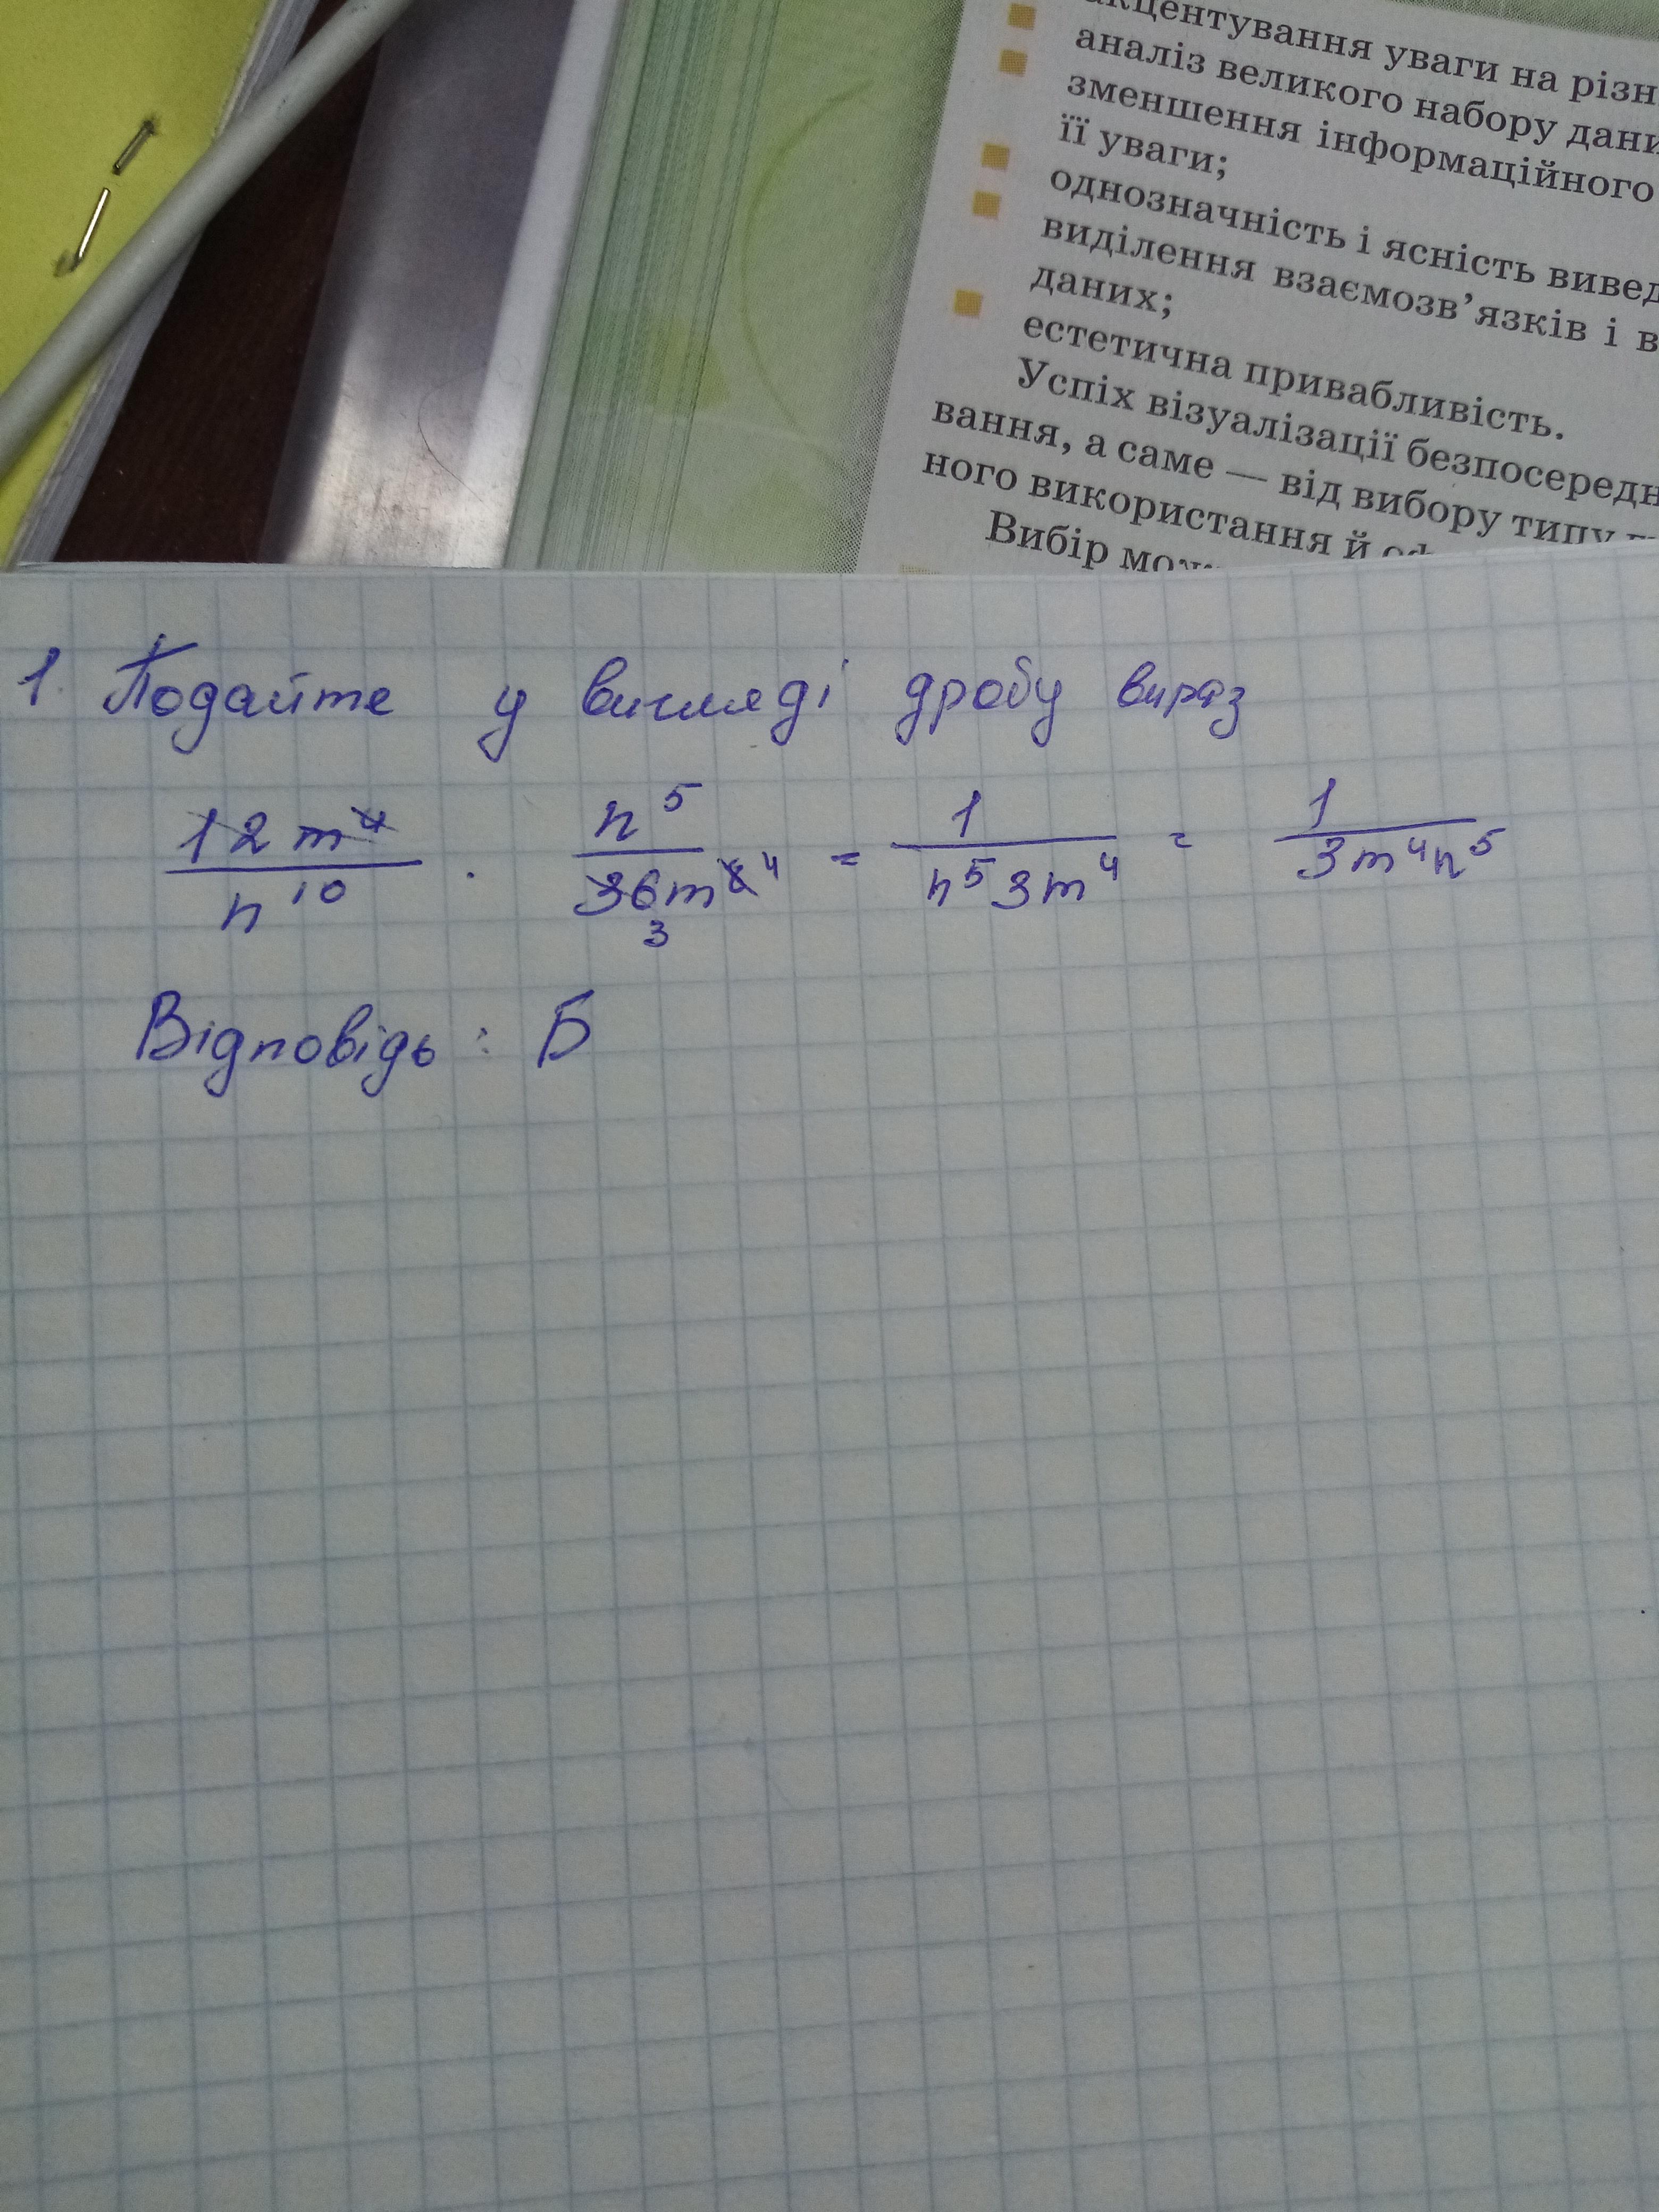 акцентування уваги на різн
аналіз великого набору дани
зменшення інформаційного
її уваги;
однозначність і ясність вивед
виділення взаємозв’язків і в
даних;
естетична привабливість.
Успіх візуалізації безпосередн
вання, а саме — від вибору типу
ного використання й
Вибір мо
1. Подайте у вигляді дробу вираз
12m⁴/n¹⁰ · n⁵/36m⁸ 4 3 = 1/n⁵3m⁴ = 1/3m⁴n⁵
Відповідь: Б